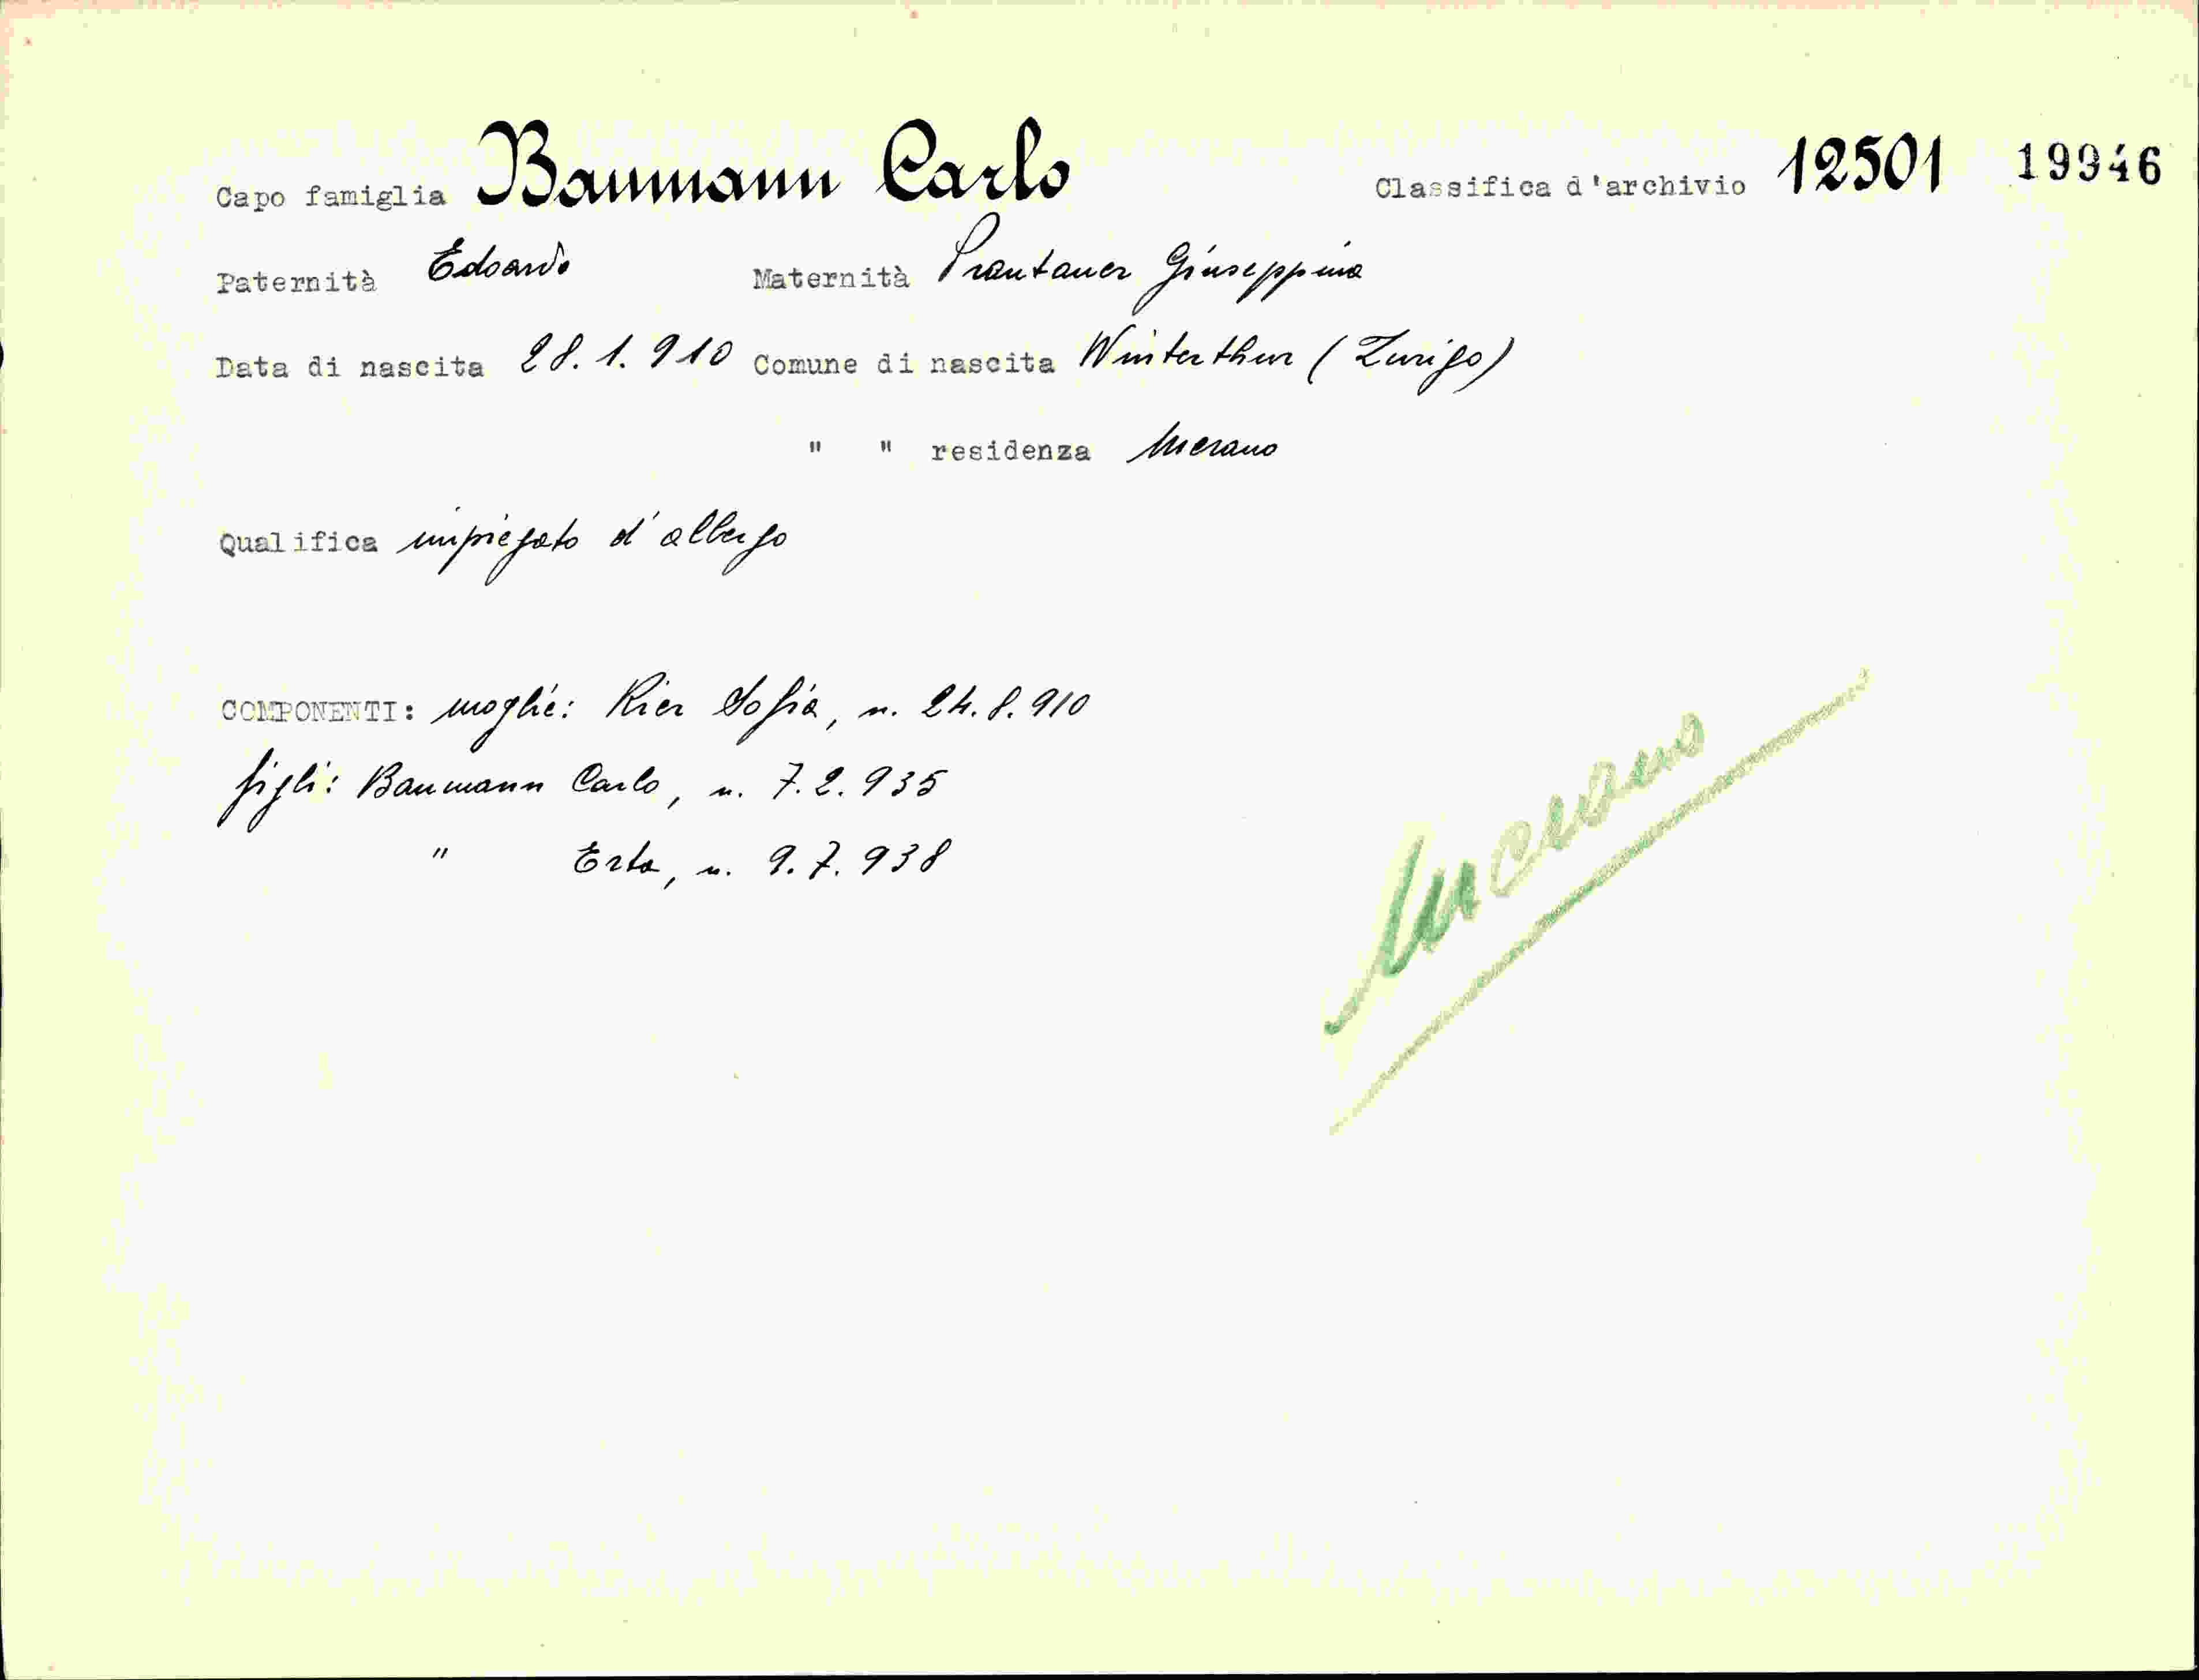 Capo famiglia Baumann Carlo Classifica d'archivio 12501 19946
Paternità Edoardo Maternità Prantauer Giuseppina
Data di nascita 28.1.910 Comune di nascita Winterthur (Zurigo)
" " residenza Merano
Qualifica impiegato d'albergo
COMPONENTI: moglie: Rier Sofia, n. 24.8.910
figli: Baumann Carlo, n. 7.2.935
" Erta, n. 9.7.938
Merano